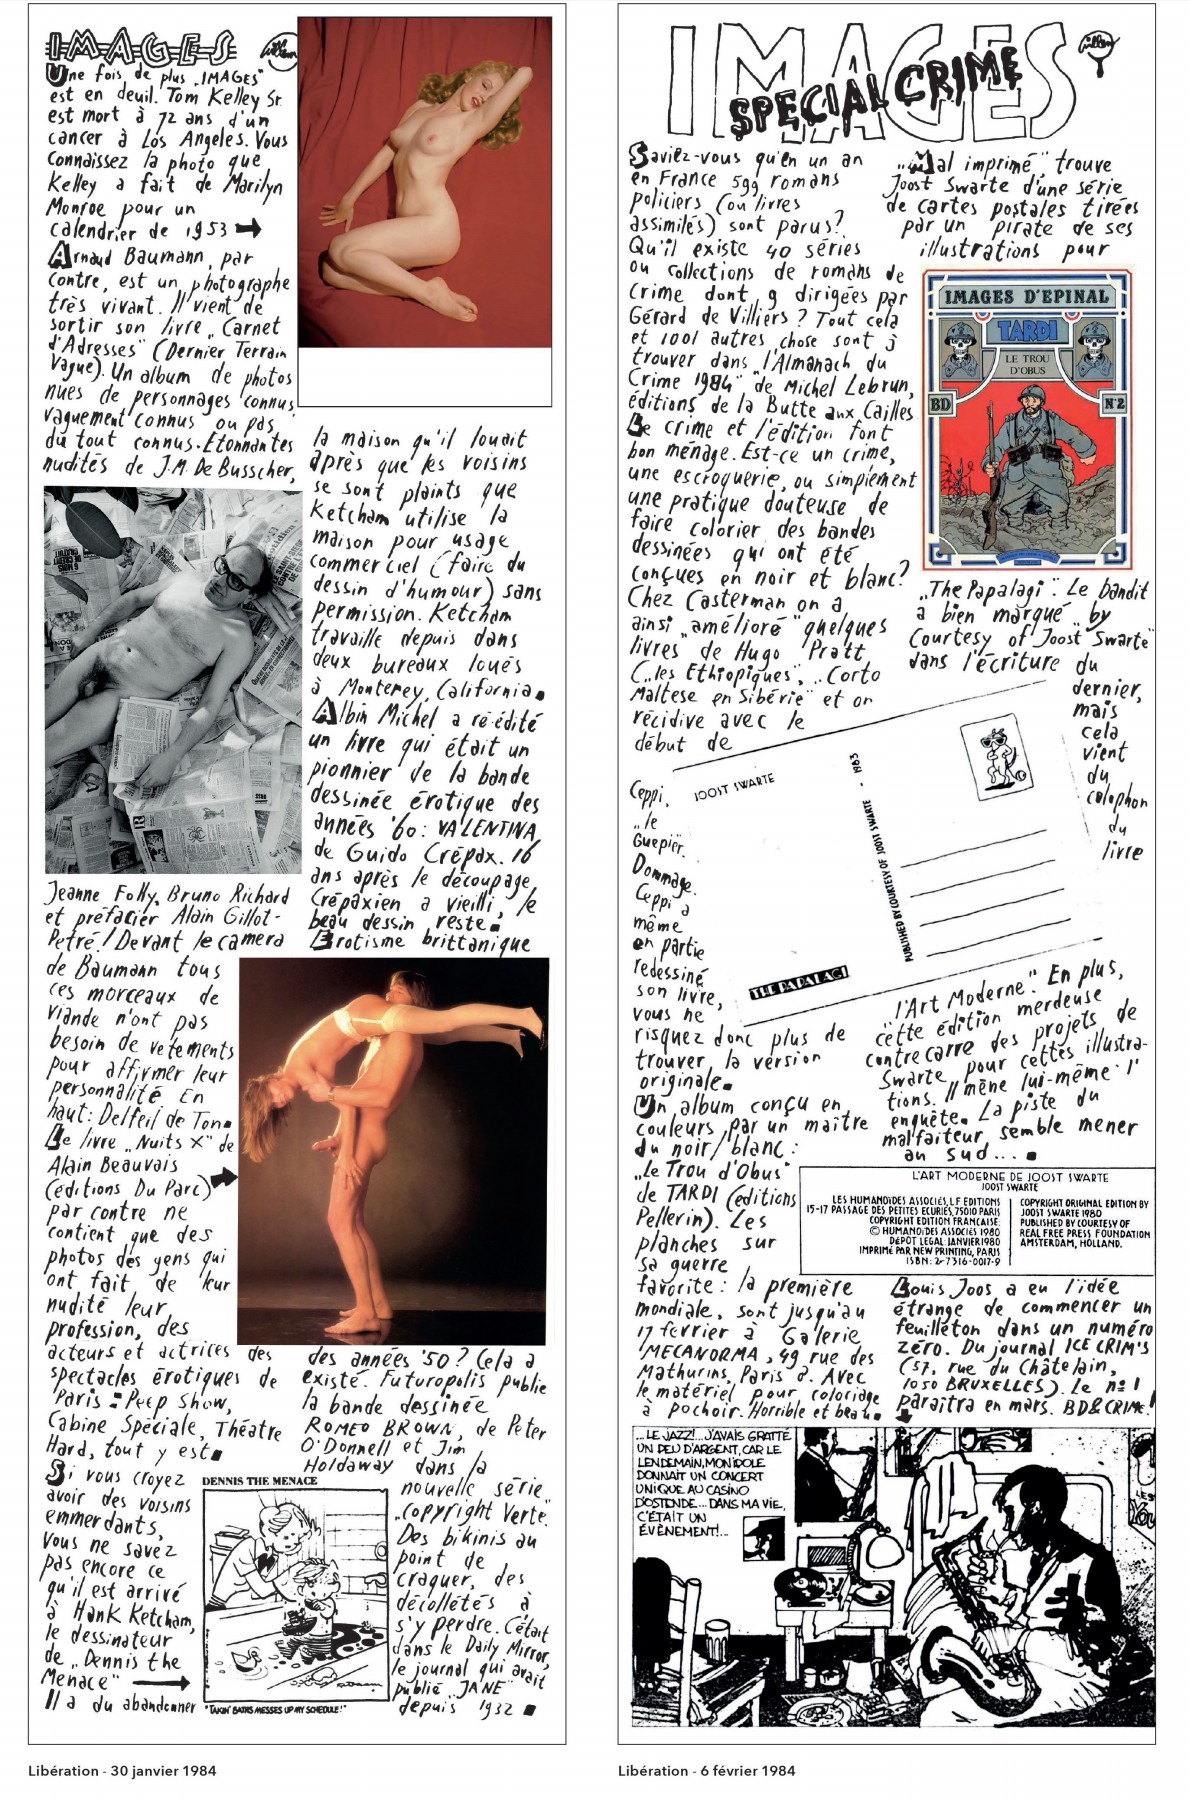 IMAGES
Willem
Une fois de plus „IMAGES"
est en deuil. Tom Kelley Sr.
est mort à 72 ans d'un
cancer à Los Angeles. Vous
connaissez la photo que
Kelley a fait de Marilyn
Monroe pour un
calendrier de 1953
Arnaud Baumann, par
contre, est un photographe
très vivant. Il vient de
sortir son livre „Carnet
d'Adresses" (Dernier Terrain
Vague). Un album de photos
nues de personnages connus,
vaguement connus ou pas
du tout connus. Etonnantes
nudités de J.M. De Busscher,
Jeanne Folly, Bruno Richard
et préfacier Alain Gillot-
Petré! Devant le camera
de Baumann tous
ces morceaux de
viande n'ont pas
besoin de vetements
pour affirmer leur
personnalité. En
haut: Delfeil de Ton.
Le livre „Nuits X" de
Alain Beauvais
(éditions Du Parc)
par contre ne
contient que des
photos des gens qui
ont fait de leur
nudité leur
profession, des
acteurs et actrices des
spectacles érotiques de
Paris: Peep Show,
Cabine Spéciale, Théatre
Hard, tout y est.
Si vous croyez
avoir des voisins
emmerdants,
vous ne savez
pas encore ce
qu'il est arrivé
à Hank Ketcham,
le dessinateur
de „Dennis the
Menace"
Il a du abandonner
DENNIS THE MENACE
"TAKIN' BATHS MESSES UP MY SCHEDULE!"
la maison qu'il louait
après que les voisins
se sont plaints que
Ketcham utilise la
maison pour usage
commerciel (faire du
dessin d'humour) sans
permission. Ketcham
travaille depuis dans
deux bureaux loués
à Monterey, California.
Albin Michel a ré-édité
un livre qui était un
pionnier de la bande
dessinée érotique des
années '60: VALENTINA,
de Guido Crépax. 16
ans après le découpage
Crépaxien a vieilli, le
beau dessin reste.
Erotisme brittanique
des années '50? Cela a
existé. Futuropolis publie
la bande dessinée
ROMEO BROWN, de Peter
O'Donnell et Jim
Holdaway dans la
nouvelle série
„Copyright Verte".
Des bikinis au
point de
craquer, des
décolletés à
s'y perdre. C'était
dans le Daily Mirror,
le journal qui avait
publié „JANE"
depuis 1932
Libération - 30 janvier 1984
IMAGES
SPECIAL CRIME
Willem
Saviez-vous qu'en un an
en France 599 romans
policiers (ou livres
assimilés) sont parus?
Qu'il existe 40 séries
ou collections de romans de
crime dont 9 dirigées par
Gérard de Villiers? Tout cela
et 1001 autres chose sont à
trouver dans „l'Almanach du
Crime 1984" de Michel Lebrun,
éditions de la Butte aux Cailles
Le crime et l'édition font
bon ménage. Est-ce un crime,
une escroquerie, ou simplement
une pratique douteuse de
faire colorier des bandes
dessinées qui ont été
conçues en noir et blanc?
Chez Casterman on a
ainsi „amélioré" quelques
livres de Hugo Pratt
(„les Ethiopiques", „Corto
Maltese en Sibérie" et on
récidive avec le
début de
Ceppi,
„le
Guepier".
Dommage.
Ceppi a
même
en partie
redessiné
son livre,
vous ne
risquez donc plus de
trouver la version
originale.
Un album conçu en
couleurs par un maître
du noir/blanc:
„Le Trou d'Obus"
de TARDI (éditions
Pellerin). Les
planches sur
sa guerre
favorite: la première
mondiale, sont jusqu'au
17 fevrier à Galerie
MECANORMA, 49 rue des
Mathurins, Paris 8. Avec
le matériel pour coloriage
à pochoir. Horrible et beau.
„Mal imprimé", trouve
Joost Swarte d'une série
de cartes postales tirées
par un pirate de ses
illustrations pour
IMAGES D'EPINAL
TARDI
LE TROU
D'OBUS
BD
N°2
„The Papalagi". Le bandit
a bien marqué „by
Courtesy of Joost Swarte"
dans l'écriture du
dernier,
mais
cela
vient
du
colophon
du
livre
JOOST SWARTE
PUBLISHED BY COURTESY OF JOOST SWARTE - 1983
THE PAPALAGI
„l'Art Moderne". En plus,
cette édition merdeuse
contrecarre des projets de
Swarte pour cettes illustra-
tions. Il mène lui-même l'
enquête. La piste du
malfaiteur semble mener
au sud...
L'ART MODERNE DE JOOST SWARTE
JOOST SWARTE
LES HUMANOÏDES ASSOCIÉS, L.F. EDITIONS
15-17 PASSAGE DES PETITES ECURIES, 75010 PARIS
COPYRIGHT EDITION FRANCAISE:
© HUMANOÏDES ASSOCIÉS 1980
DÉPOT LEGAL: JANVIER 1980
IMPRIMÉ PAR NEW PRINTING, PARIS
ISBN: 2-7316-0017-9
COPYRIGHT ORIGINAL EDITION BY
JOOST SWARTE 1980
PUBLISHED BY COURTESY OF
REAL FREE PRESS FOUNDATION
AMSTERDAM, HOLLAND.
Louis Joos a eu l'idée
étrange de commencer un
feuilleton dans un numéro
zéro. Du journal ICE CRIM'S
(57, rue du Châtelain,
1050 BRUXELLES). Le n° 1
paraîtra en mars. BD & CRIME!
...LE JAZZ!... J'AVAIS GRATTÉ
UN PEU D'ARGENT, CAR LE
LENDEMAIN, MON IDOLE
DONNAIT UN CONCERT
UNIQUE AU CASINO
D'OSTENDE... DANS MA VIE,
C'ÉTAIT UN
ÉVÈNEMENT!...
Libération - 6 février 1984